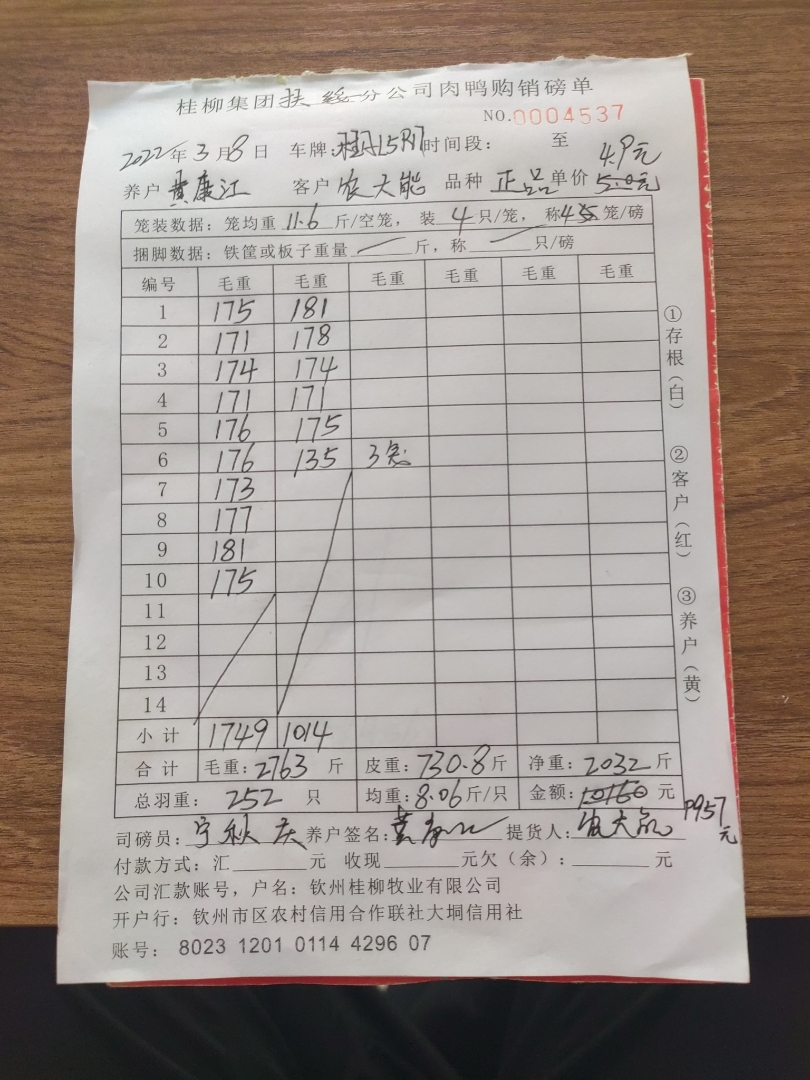 桂柳集团扶绥分公司肉鸭购销磅单
NO.0004537
2022年3月8日 车牌: 时间段: 至
4.9元
养户 黄康江 客户 农大能 品种 正品 单价 5.0元
笼装数据: 笼均重 11.6 斤/空笼, 装 4 只/笼, 称 笼/磅
捆脚数据: 铁筐或板子重量 斤, 称 只/磅
编号 毛重 毛重 毛重 毛重 毛重 毛重
1 175 181
2 171 178
3 174 174
4 171 171
5 176 175
6 176 135 3笼
7 173
8 177
9 181
10 175
11
12
13
14
小计 1749 1014
合计 毛重: 2763 斤 皮重: 730.8 斤 净重: 2032 斤
总羽重: 252 只 均重: 8.06 斤/只 金额: 10160 元
9957元
司磅员: 宁秋庆 养户签名: 黄康江 提货人: 农大能
付款方式: 汇 元 收现 元欠(余): 元
公司汇款账号, 户名: 钦州桂柳牧业有限公司
开户行: 钦州市区农村信用合作联社大垌信用社
账号: 8023 1201 0114 4296 07
①存根(白)
②客户(红)
③养户(黄)